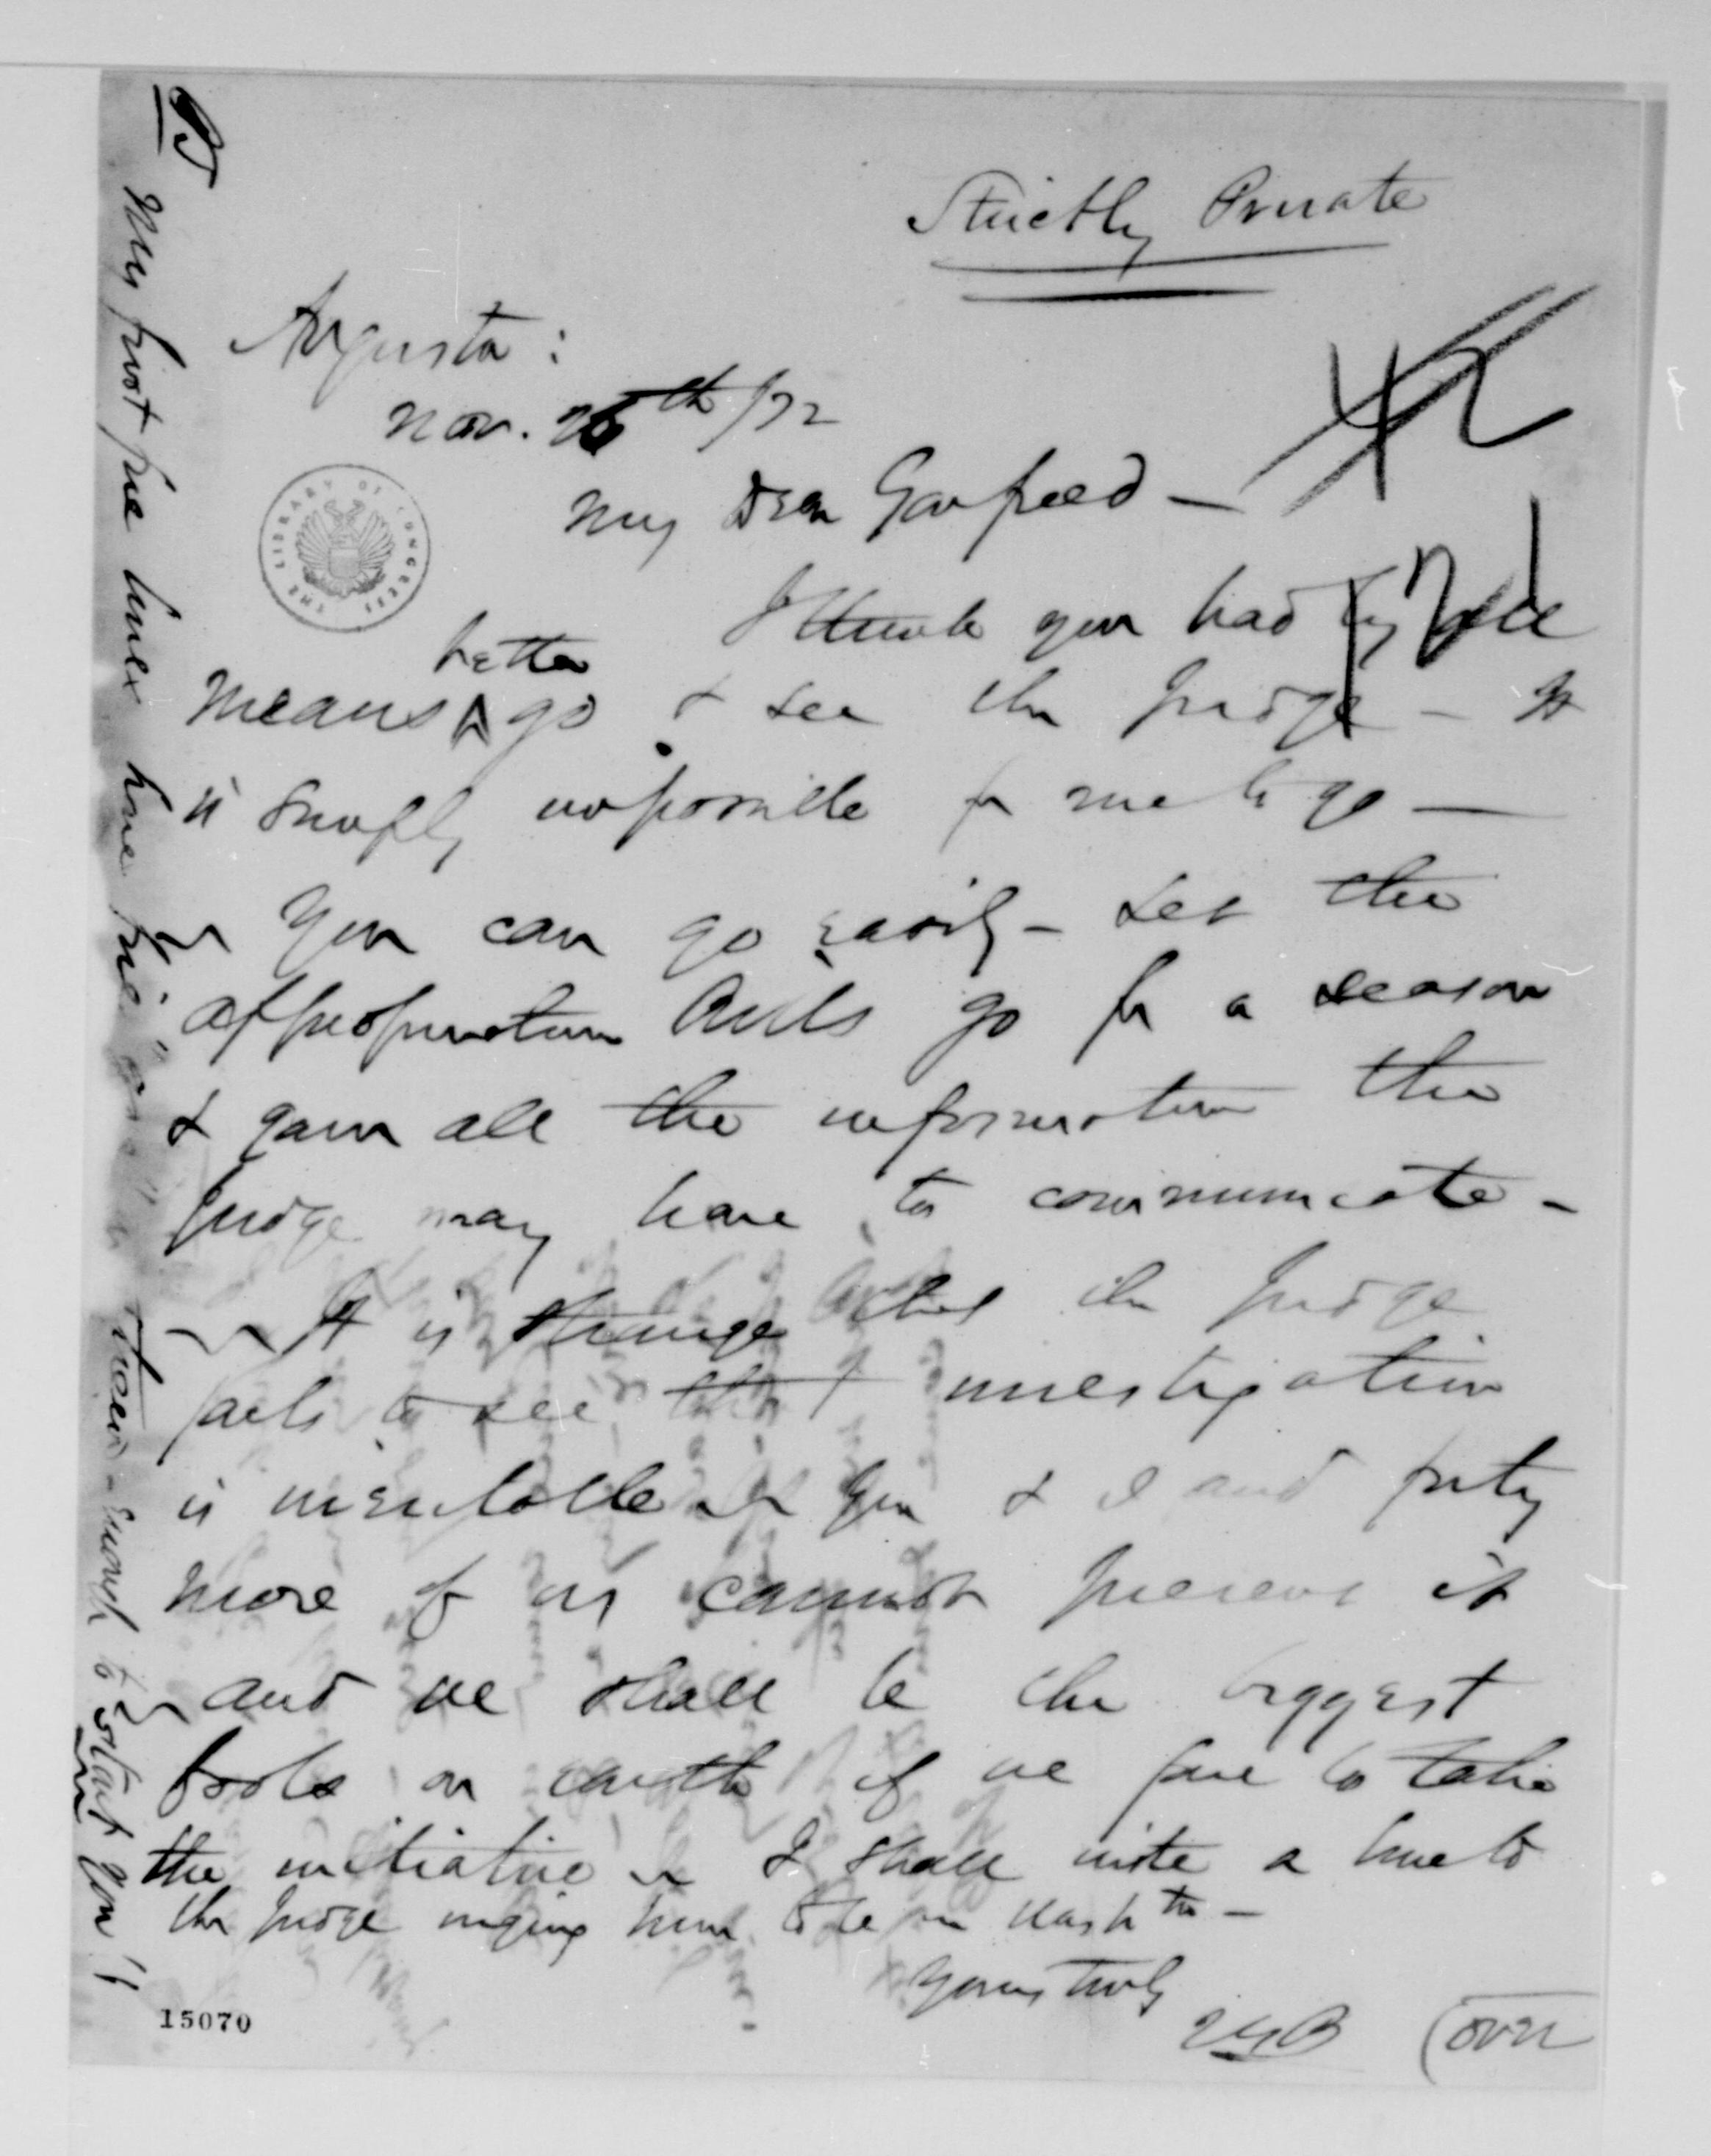 Strictly Private
Augusta:
Nov. 26th /72
My Dear Garfield —
I think you had by all
better
means ^ go & see the Judge — It
is simply impossible for me to go —
You can go easily — Let the
appropriation Bills go for a season
& gain all the information the
Judge may have to communicate —
It is strange that the Judge
fails to see that investigation
is inevitable — You & I and forty
more of us cannot prevent it
and we shall be the biggest
fools on earth if we fail to take
the initiative — I shall write a line to
the Judge urging him to be in Washtn —
Yours truly
JGB (over
PS
My first five lines have five
them — Enough to start you!!
15070
THE LIBRARY OF CONGRESS
42